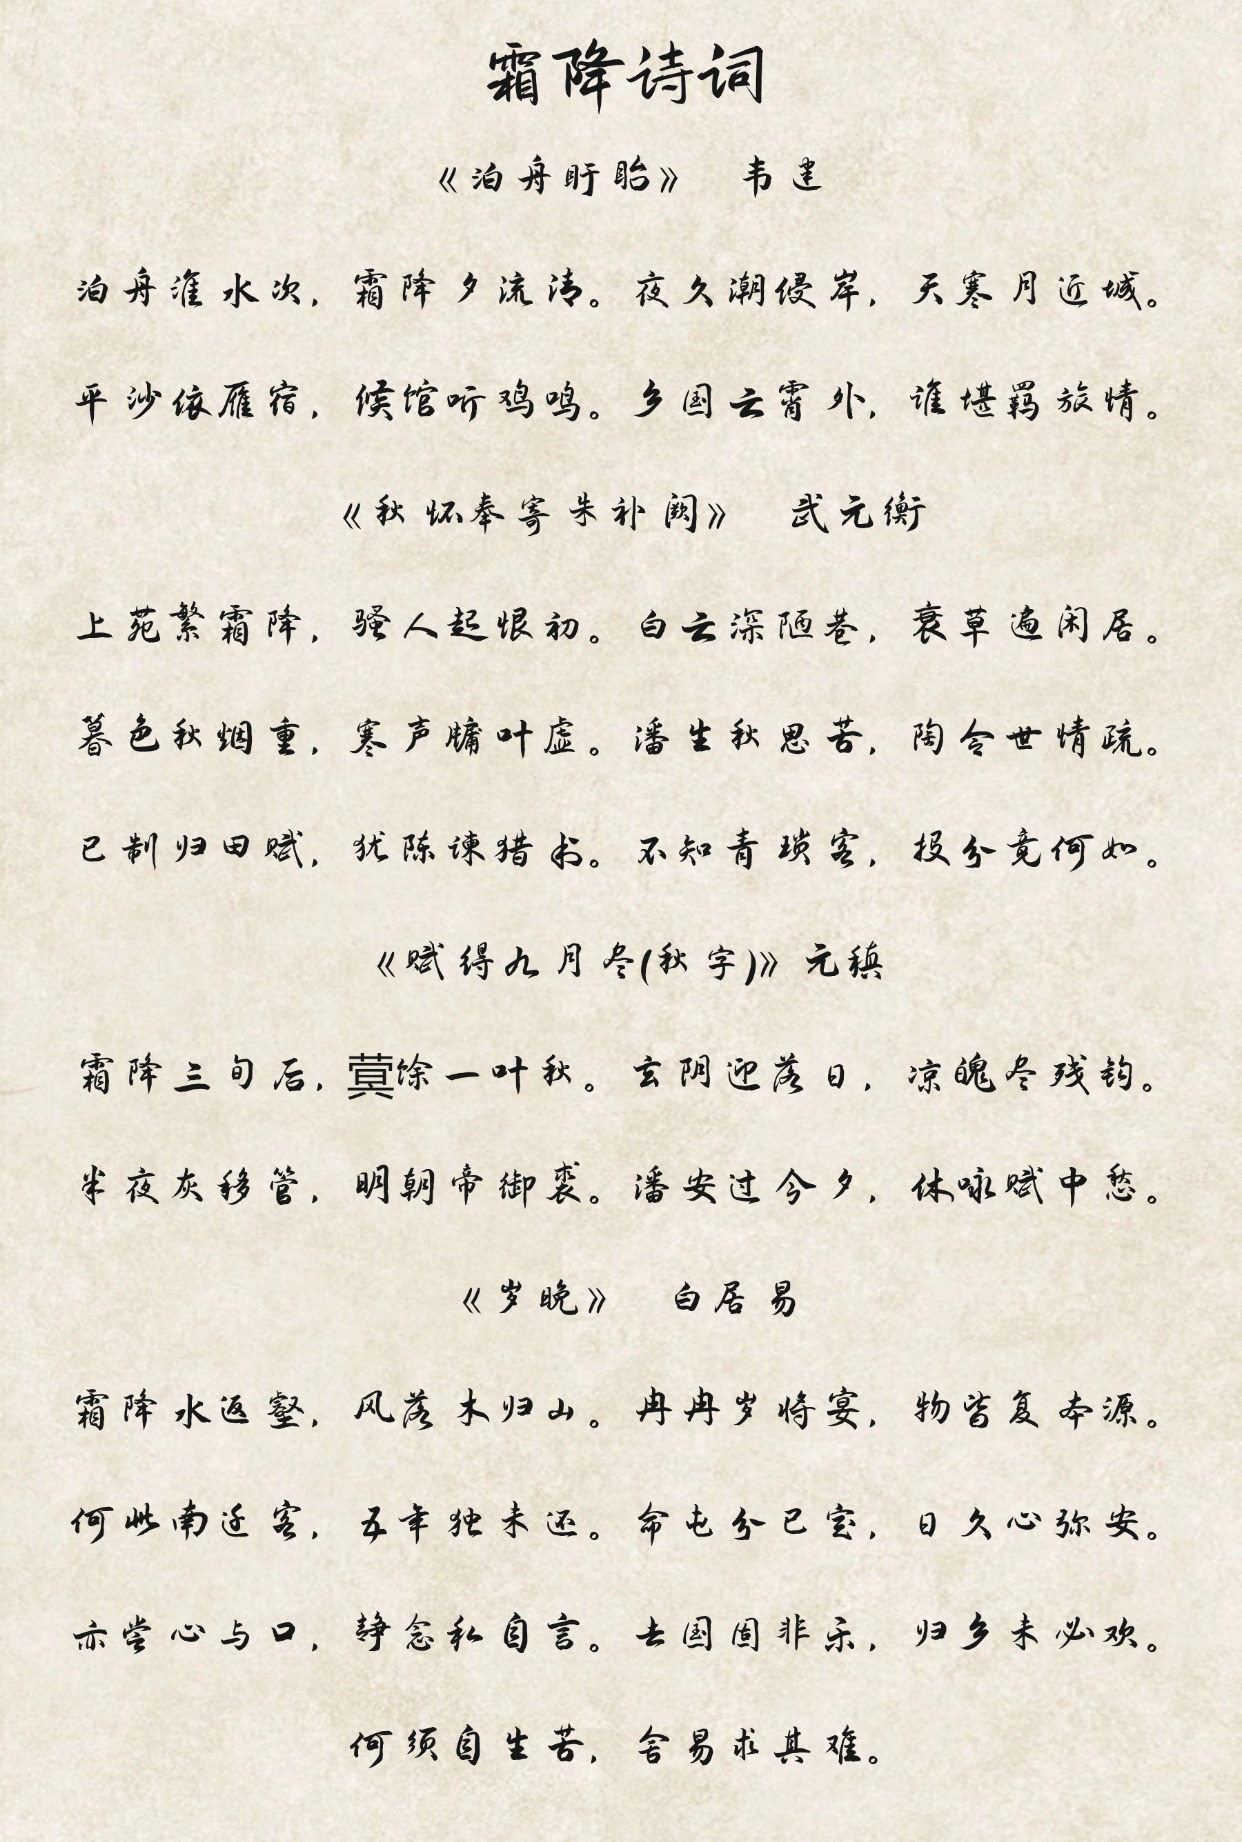 霜降诗词
《泊舟盱眙》 韦建
泊舟淮水次，霜降夕流清。夜久潮侵岸，天寒月近城。
平沙依雁宿，候馆听鸡鸣。乡国云霄外，谁堪羁旅情。
《秋怀奉寄朱补阙》 武元衡
上苑繁霜降，骚人起恨初。白云深陋巷，衰草遍闲居。
暮色秋烟重，寒声牖叶虚。潘生秋思苦，陶令世情疏。
已制归田赋，犹陈谏猎书。不知青琐客，投分竟何如。
《赋得九月尽(秋字)》元稹
霜降三旬后，蓂馀一叶秋。玄阴迎落日，凉魄尽残钩。
半夜灰移管，明朝帝御裘。潘安过今夕，休咏赋中愁。
《岁晚》 白居易
霜降水返壑，风落木归山。冉冉岁将宴，物皆复本源。
何此南迁客，五年独未还。命屯分已定，日久心弥安。
亦尝心与口，静念私自言。去国固非乐，归乡未必欢。
何须自生苦，舍易求其难。